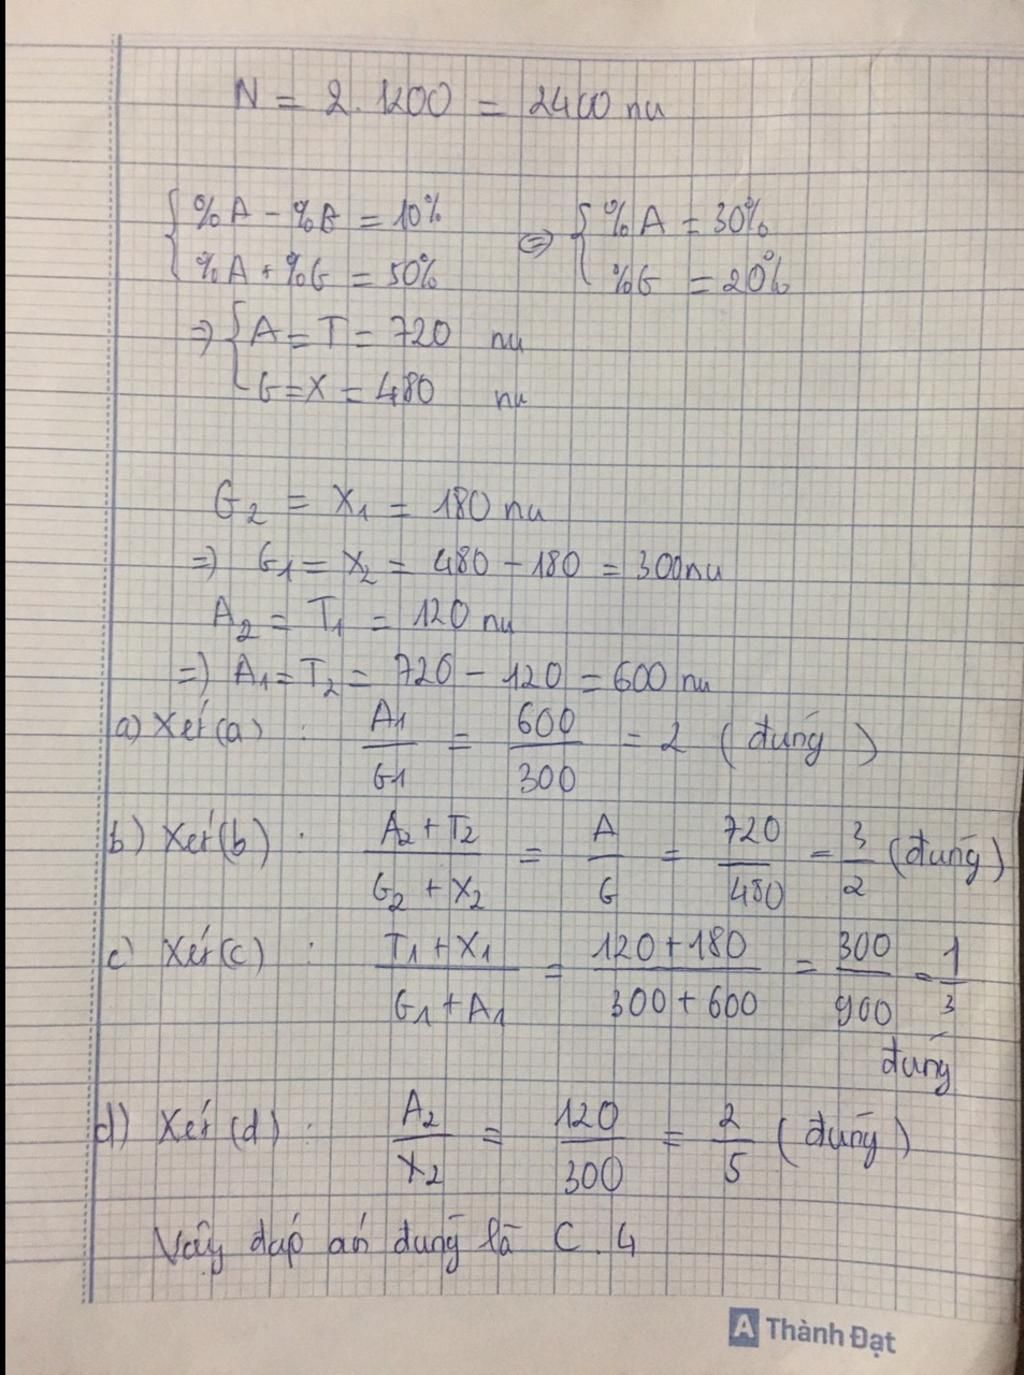 N = 2.1200 = 2400 nu
{ %A - %G = 10% ⇔ { %A = 30%
{ %A + %G = 50% { %G = 20%
=> { A = T = 720 nu
{ G = X = 480 nu
G2 = X1 = 180 nu
=> G1 = X2 = 480 - 180 = 300nu
A2 = T1 = 120 nu
=> A1 = T2 = 720 - 120 = 600 nu
a) Xét (a) : A1/G1 = 600/300 = 2 (đúng)
b) Xét (b) : (A2 + T2)/(G2 + X2) = A/G = 720/480 = 3/2 (đúng)
c) Xét (c) : (T1 + X1)/(G1 + A1) = (120 + 180)/(300 + 600) = 300/900 = 1/3
đúng
d) Xét (d) : A2/X2 = 120/300 = 2/5 (đúng)
Vậy đáp án đúng là C. 4
A Thành Đạt